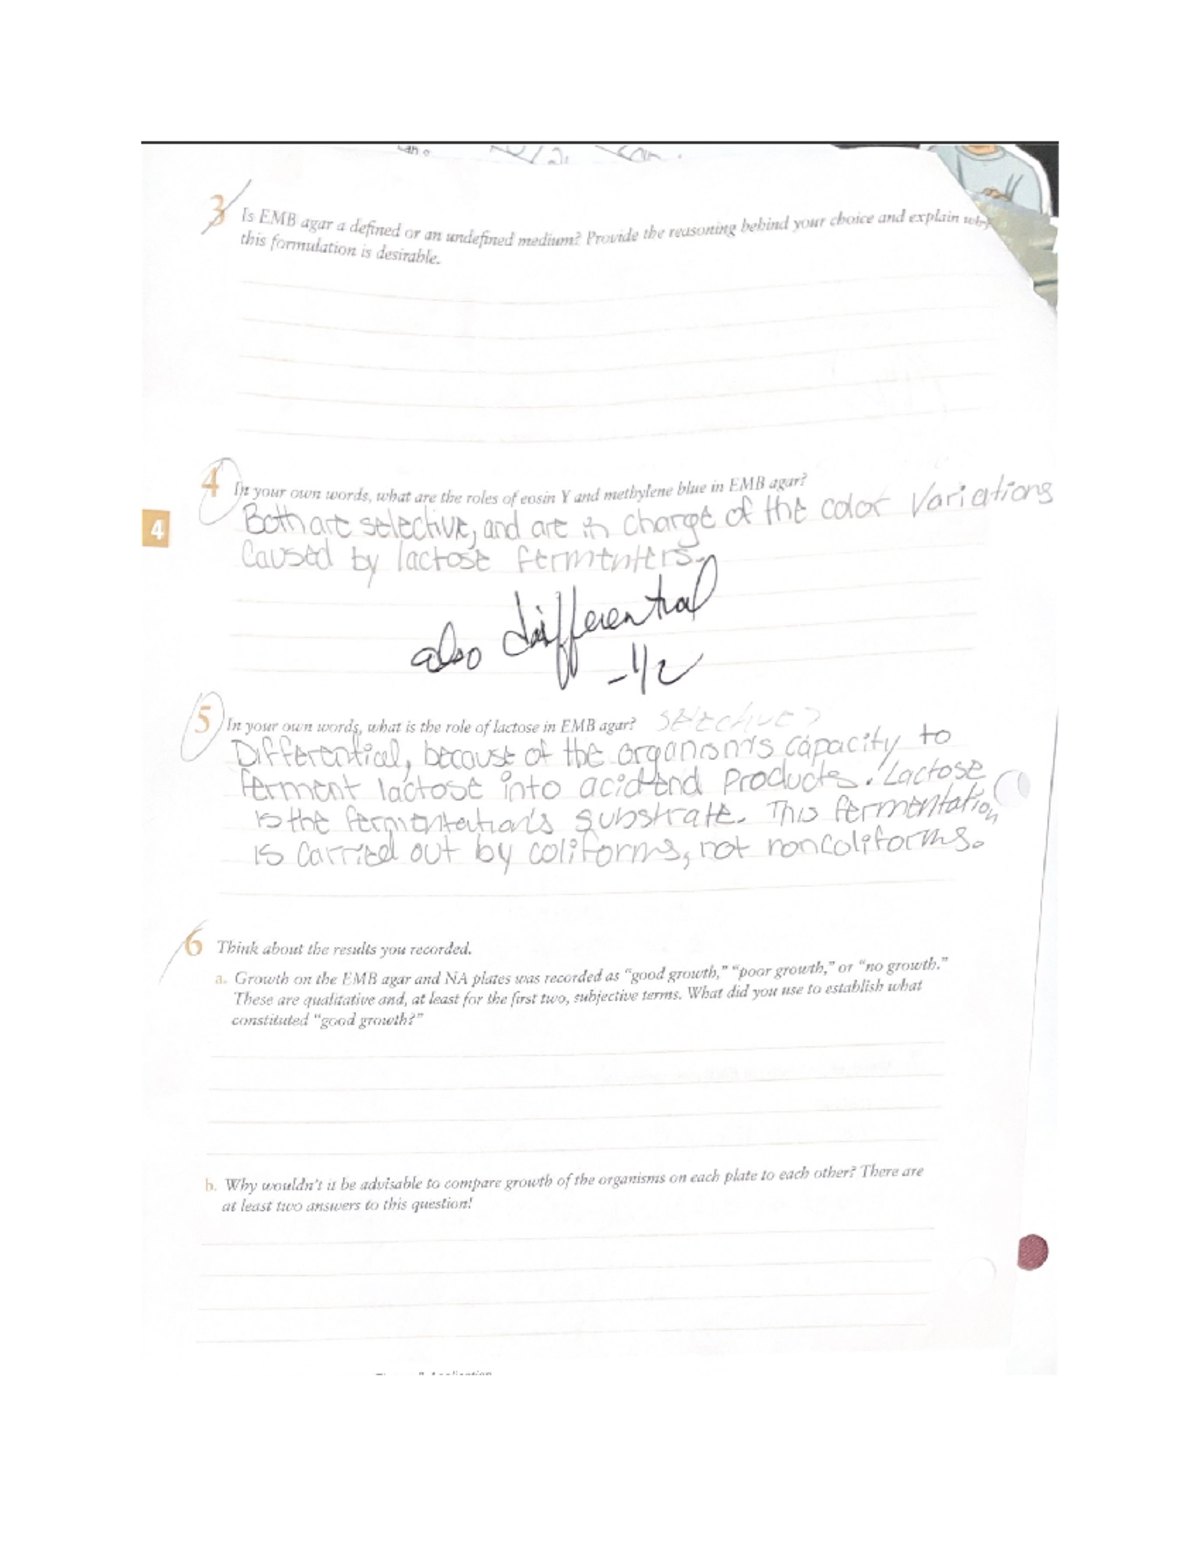 3 Is EMB agar a defined or an undefined medium? Provide the reasoning behind your choice and explain why
this formulation is desirable.
4 In your own words, what are the roles of eosin Y and methylene blue in EMB agar?
Both are selective, and are in charge of the color variations
4
caused by lactose fermenters.
also differential
-1/2
5 In your own words, what is the role of lactose in EMB agar? selective?
Differential, because of the organism's capacity to
ferment lactose into acid end products. Lactose
is the fermentation's substrate. This fermentation
is carried out by coliforms, not noncoliforms.
6 Think about the results you recorded.
a. Growth on the EMB agar and NA plates was recorded as “good growth,” “poor growth,” or “no growth.”
These are qualitative and, at least for the first two, subjective terms. What did you use to establish what
constituted “good growth?”
b. Why wouldn't it be advisable to compare growth of the organisms on each plate to each other? There are
at least two answers to this question!